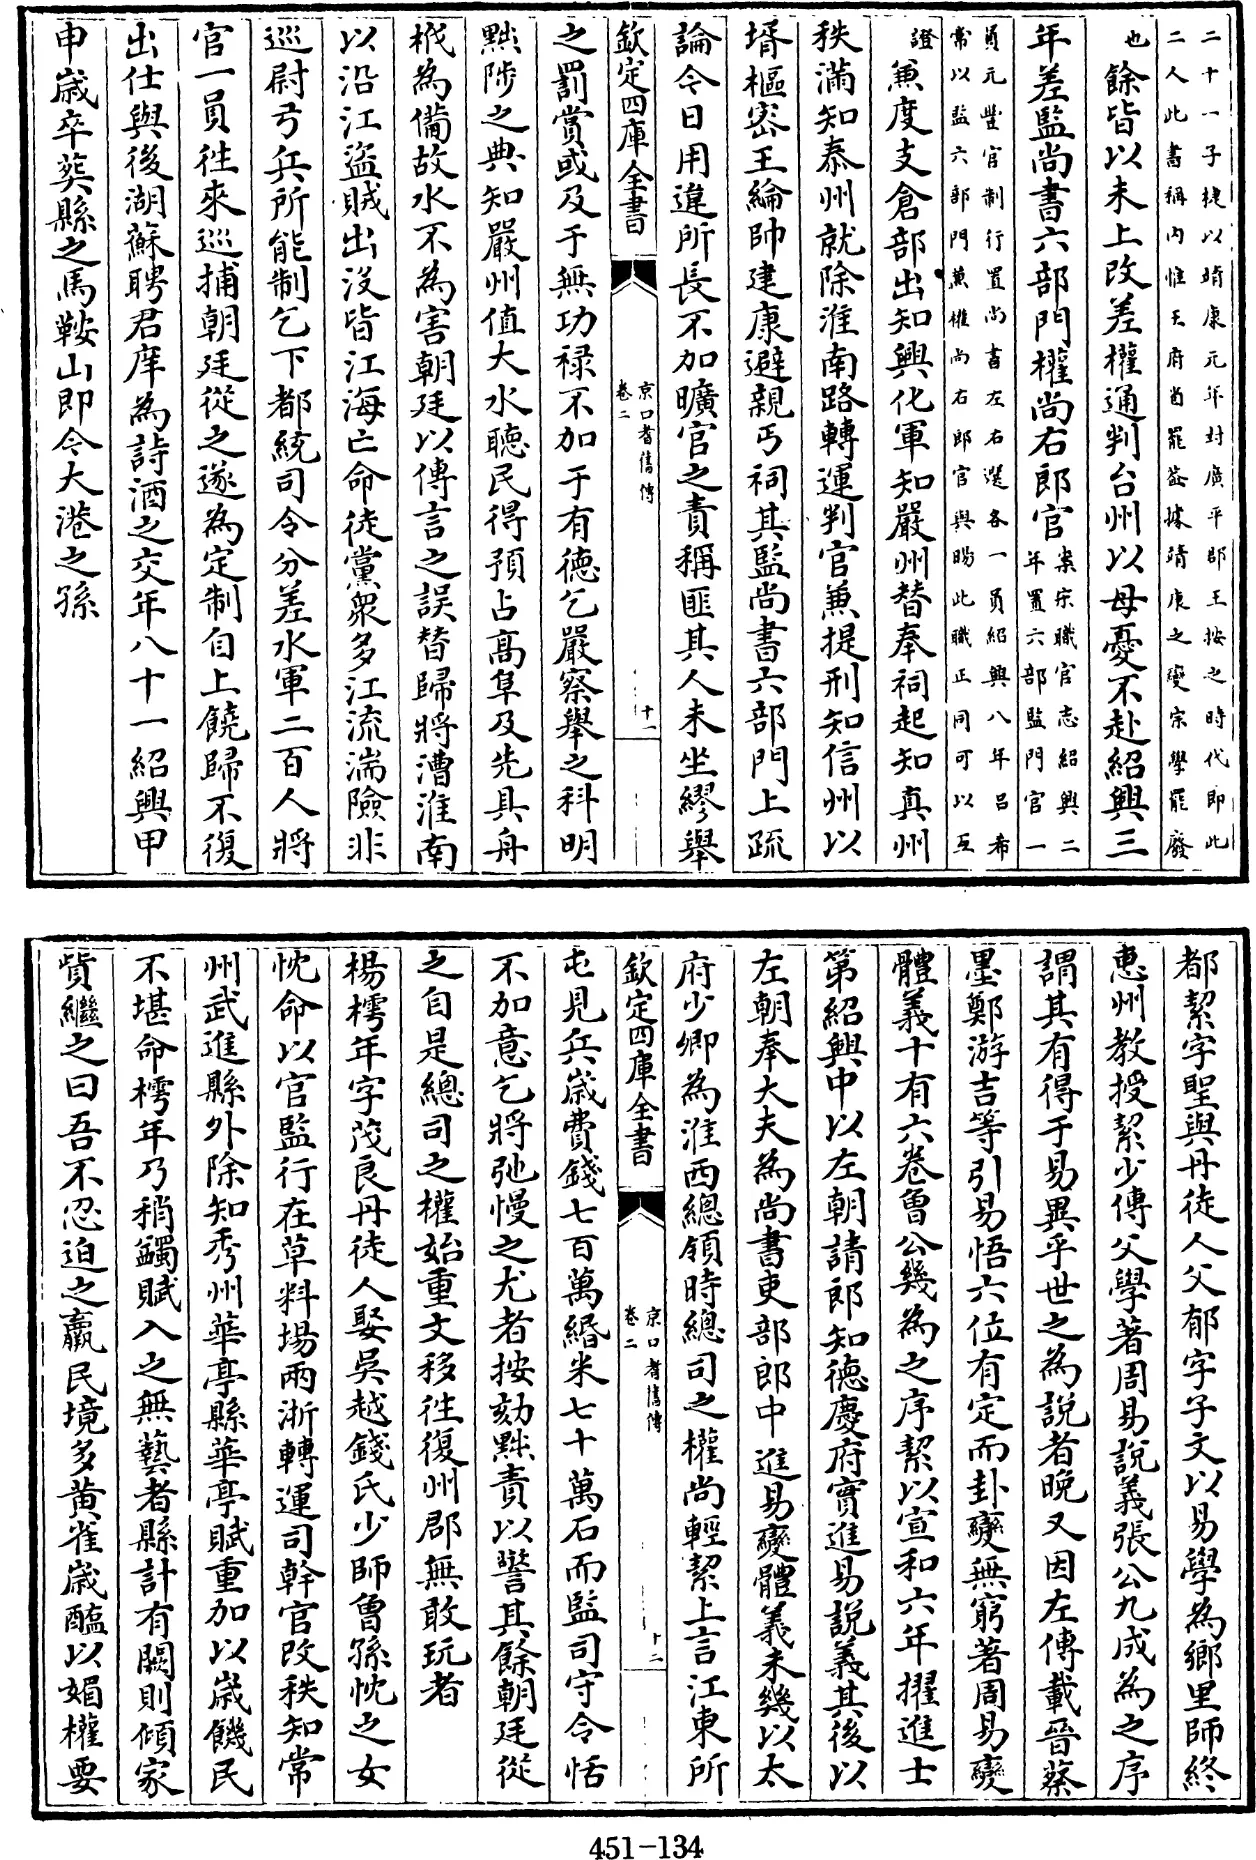 二十一子楗以靖康元年封廣平郡王按之時代即此
二人此書稱内惟王府尚罷葢據靖康之變宗學罷廢
也餘皆以未上改差權通判台州以母憂不赴紹興三
年差監尚書六部門權尚右郎官案宋職官志紹興二
年置六部監門官一
員元豐官制行置尚書左右選各一員紹興八年吕希
常以監六部門兼權尚右郎官與賜此職正同可以互
證兼度支倉部出知興化軍知嚴州替奉祠起知真州
秩滿知泰州就除淮南路轉運判官兼提刑知信州以
壻樞密王綸帥建康避親丐祠其監尚書六部門上疏
論今日用違所長不加曠官之責稱匪其人未坐繆舉
欽定四庫全書
京口耆舊傳
卷二
十一
之罰賞或及于無功禄不加于有德乞嚴察舉之科明
黜陟之典知嚴州值大水聽民得預占高阜及先具舟
栰為備故水不為害朝廷以傳言之誤替歸將漕淮南
以沿江盜賊出没皆江海亡命徒黨衆多江流湍險非
巡尉弓兵所能制乞下都統司令分差水軍二百人將
官一員往來巡捕朝廷從之遂為定制自上饒歸不復
出仕與後湖蘇聘君庠為詩酒之交年八十一紹興甲
申歲卒葬縣之馬鞍山即今大港之孫
都絜字聖與丹徒人父郁字子文以易學為鄉里師終
惠州教授絜少傳父學著周易說義張公九成為之序
謂其有得于易異乎世之為說者晚又因左傳載晉蔡
墨鄭游吉等引易悟六位有定而卦變無窮著周易變
體義十有六卷曾公幾為之序絜以宣和六年擢進士
第紹興中以左朝請郎知德慶府實進易說義其後以
左朝奉大夫為尚書吏部郎中進易變體義未幾以太
府少卿為淮西總領時總司之權尚輕絜上言江東所
欽定四庫全書
京口耆舊傳
卷二
十二
屯見兵歲費錢七百萬緡米七十萬石而監司守令恬
不加意乞將弛慢之尤者按劾黜責以警其餘朝廷從
之自是總司之權始重文移往復州郡無敢玩者
楊樗年字茂良丹徒人娶吳越錢氏少師曾孫忱之女
忱命以官監行在草料場兩浙轉運司幹官改秩知常
州武進縣外除知秀州華亭縣華亭賦重加以歲饑民
不堪命樗年乃稍蠲賦入之無藝者縣計有闕則傾家
貲繼之曰吾不忍迫之羸民境多黄雀歲醢以媚權要
451-134